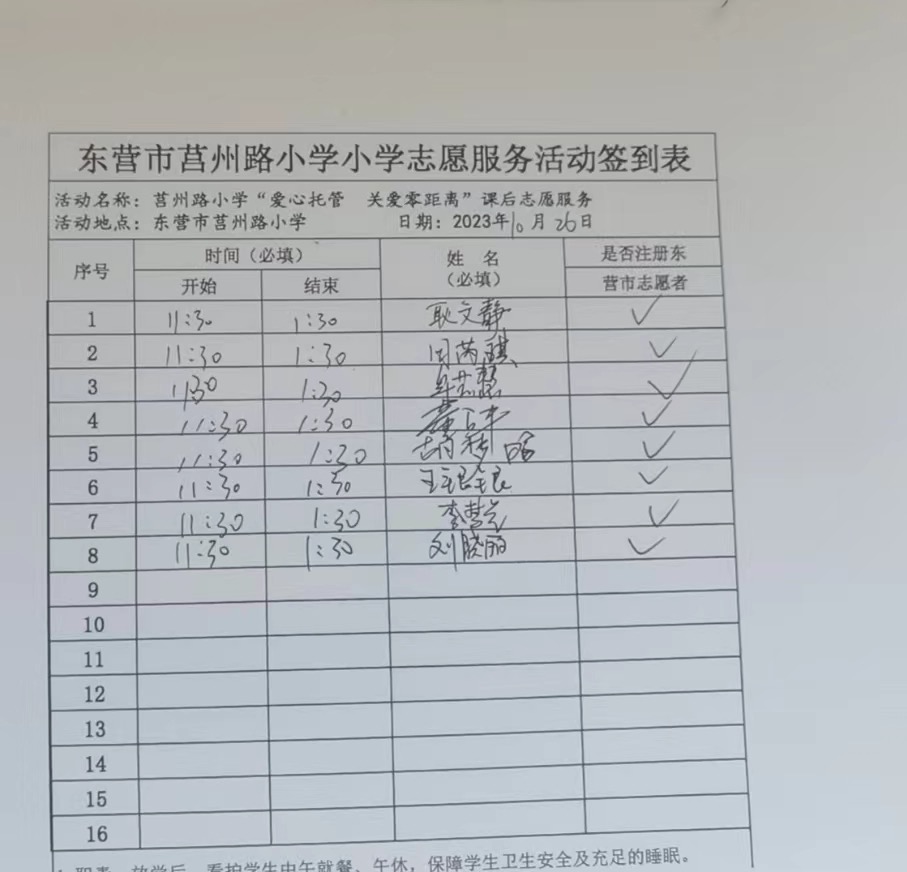 东营市莒州路小学小学志愿服务活动签到表
活动名称：莒州路小学“爱心托管 关爱零距离”课后志愿服务
活动地点：东营市莒州路小学 日期：2023年10月26日
序号 时间（必填） 姓名（必填） 是否注册东营市志愿者
开始 结束
1 11:30 1:30 耿文静 ✓
2 11:30 1:30 周芮琪 ✓
3 11:30 1:30 ✓
4 11:30 1:30 ✓
5 11:30 1:30 ✓
6 11:30 1:30 王银银 ✓
7 11:30 1:30 ✓
8 11:30 1:30 刘晓丽 ✓
9
10
11
12
13
14
15
16
职责：放学后，看护学生中午就餐、午休，保障学生卫生安全及充足的睡眠。